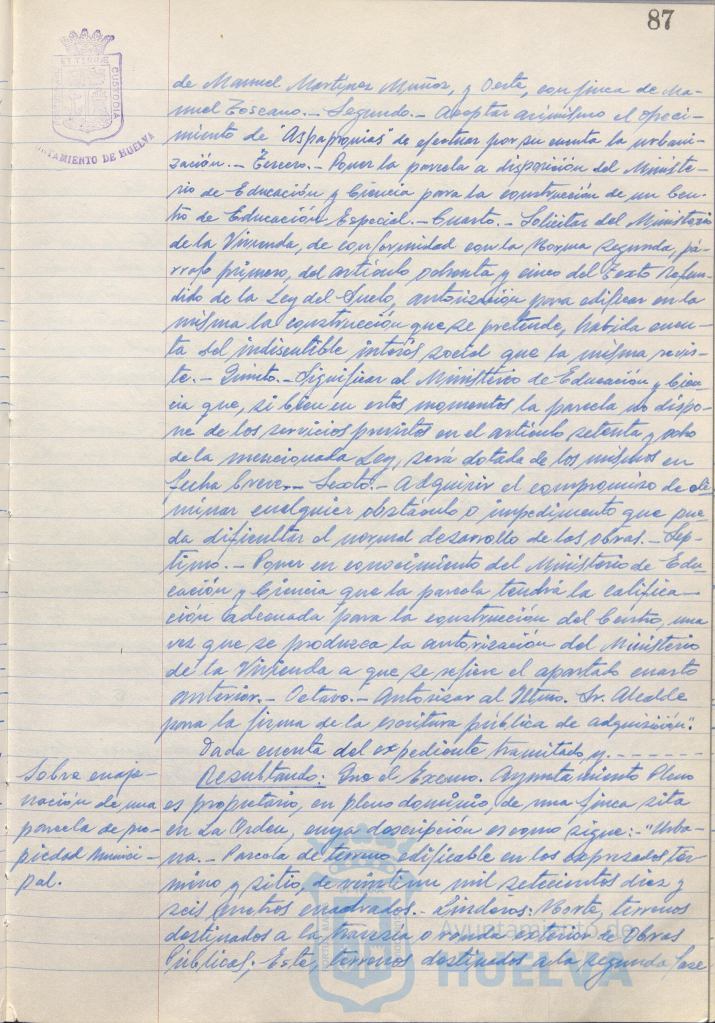 87
PORTUS MARIS
ET TERRAE
CUSTODIA
AYUNTAMIENTO DE HUELVA
de Manuel Martínez Muñoz, y Oeste, con finca de Ma-
nuel Toscano.- Segundo.- Aceptar asimismo el ofreci-
miento de "Aspapronias" de efectuar por su cuenta la urbani-
zación.- Tercero.- Poner la parcela a disposición del Ministe-
rio de Educación y Ciencia para la construcción de un Cen-
tro de Educación Especial.- Cuarto.- Solicitar del Ministerio
de la Vivienda, de conformidad con la Norma segunda, pá-
rrafo primero, del artículo ochenta y cinco del Texto Refun-
dido de la Ley del Suelo, autorización para edificar en la
misma la construcción que se pretende, habida cuen-
ta del indiscutible interés social que la misma revis-
te.- Quinto.- Significar al Ministerio de Educación y Cien-
cia que, si bien en estos momentos la parcela no dispo-
ne de los servicios previstos en el artículo setenta y ocho
de la mencionada Ley, será dotada de los mismos en
fecha breve.- Sexto.- Adquirir el compromiso de eli-
minar cualquier obstáculo o impedimento que pue-
da dificultar el normal desarrollo de las obras.- Sép-
timo.- Poner en conocimiento del Ministerio de Edu-
cación y Ciencia que la parcela tendrá la califica-
ción adecuada para la construcción del Centro, una
vez que se produzca la autorización del Ministerio
de la Vivienda a que se refiere el apartado cuarto
anterior.- Octavo.- Autorizar al Iltmo. Sr. Alcalde
para la firma de la escritura pública de adquisición".
Dada cuenta del expediente tramitado y - - - - - - - -
Sobre enaje-
nación de una
parcela de pro-
piedad Munici-
pal.
Resultando: Que el Excmo. Ayuntamiento Pleno
es propietario, en pleno dominio, de una finca sita
en La Orden, cuya descripción es como sigue:- "Urba-
na.- Parcela de terreno edificable en los expresados tér-
mino y sitio, de veintiun mil setecientos diez y
seis metros cuadrados.- Linderos: Norte, terrenos
destinados a la travesía o ronda exterior de Obras
Públicas; Este, terrenos destinados a la segunda fase
Ayuntamiento de
HUELVA